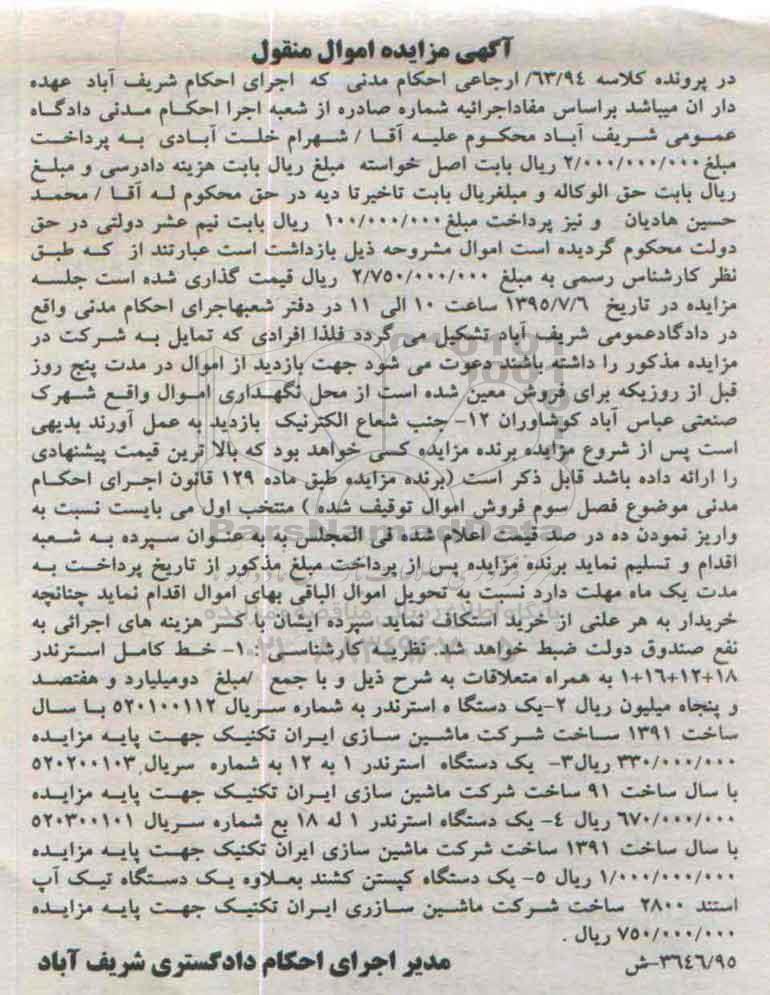 آگهی مزایده اموال منقول
در پرونده کلاسه ٦٣/٩٤/ ارجاعی احکام مدنی که اجرای احکام شریف آباد عهده
دار ان میباشد براساس مفاداجرائیه شماره صادره از شعبه اجرا احکام مدنی دادگاه
عمومی شریف آباد محکوم علیه آقا / شهرام خلت آبادی به پرداخت
مبلغ ٢/٠٠٠/٠٠٠/٠٠٠ ریال بابت اصل خواسته مبلغ ریال بابت هزینه دادرسی و مبلغ
ریال بابت حق الوکاله و مبلغریال بابت تاخیرتا دیه در حق محکوم له آقا / محمد
حسین هادیان و نیز پرداخت مبلغ ١٠٠/٠٠٠/٠٠٠ ریال بابت نیم عشر دولتی در حق
دولت محکوم گردیده است اموال مشروحه ذیل بازداشت است عبارتند از که طبق
نظر کارشناس رسمی به مبلغ ٢/٧٥٠/٠٠٠/٠٠٠ ریال قیمت گذاری شده است جلسه
مزایده در تاریخ ١٣٩٥/٧/٦ ساعت ١٠ الی ١١ در دفتر شعبهاجرای احکام مدنی واقع
در دادگادعمومی شریف آباد تشکیل می گردد فلذا افرادی که تمایل به شرکت در
مزایده مذکور را داشته باشند دعوت می شود جهت بازدید از اموال در مدت پنج روز
قبل از روزیکه برای فروش معین شده است از محل نگهداری اموال واقع شهرک
صنعتی عباس آباد کوشاوران ١٢- جنب شعاع الکترنیک بازدید به عمل آورند بدیهی
است پس از شروع مزایده برنده مزایده کسی خواهد بود که بالا ترین قیمت پیشنهادی
را ارائه داده باشد قابل ذکر است (برنده مزایده طبق ماده ١٢٩ قانون اجرای احکام
مدنی موضوع فصل سوم فروش اموال توقیف شده ) منتخب اول می بایست نسبت به
واریز نمودن ده در صد قیمت اعلام شده فی المجلس به به عنوان سپرده به شعبه
اقدام و تسلیم نماید برنده مزایده پس از پرداخت مبلغ مذکور از تاریخ پرداخت به
مدت یک ماه مهلت دارد نسبت به تحویل اموال الباقی بهای اموال اقدام نماید چنانچه
خریدار به هر علنی از خرید استکاف نماید سپرده ایشان با کسر هزینه های اجرائی به
نفع صندوق دولت ضبط خواهد شد. نظریه کارشناسی : ١- خط کامل استرندر
١٨+١٢+١٦+١ به همراه متعلاقات به شرح ذیل و با جمع /مبلغ دومیلیارد و هفتصد
و پنجاه میلیون ریال ٢-یک دستگا ه استرندر به شماره سریال ٥٢٠١٠٠١١٢ با سال
ساخت ١٣٩١ ساخت شرکت ماشین سازی ایران تکنیک جهت پایه مزایده
٣٣٠/٠٠٠/٠٠٠ ریال٣- یک دستگاه استرندر ١ به ١٢ به شماره سریال ٥٢٠٢٠٠١٠٣
با سال ساخت ٩١ ساخت شرکت ماشین سازی ایران تکنیک جهت پایه مزایده
٦٧٠/٠٠٠/٠٠٠ ریال ٤- یک دستگاه استرندر ١ له ١٨ بع شماره سریال ٥٢٠٣٠٠١٠١
با سال ساخت ١٣٩١ ساخت شرکت ماشین سازی ایران تکنیک جهت پایه مزایده
١/٠٠٠/٠٠٠/٠٠٠ ریال ٥- یک دستگاه کپستن کشند بعلاوه یک دستگاه تیک آپ
استند ٢٨٠٠ ساخت شرکت ماشین سازری ایران تکنیک جهت پایه مزایده
٧٥٠/٠٠٠/٠٠٠ ریال .
٣٦٤٦/٩٥-ش مدیر اجرای احکام دادگستری شریف آباد
ParsNamadData